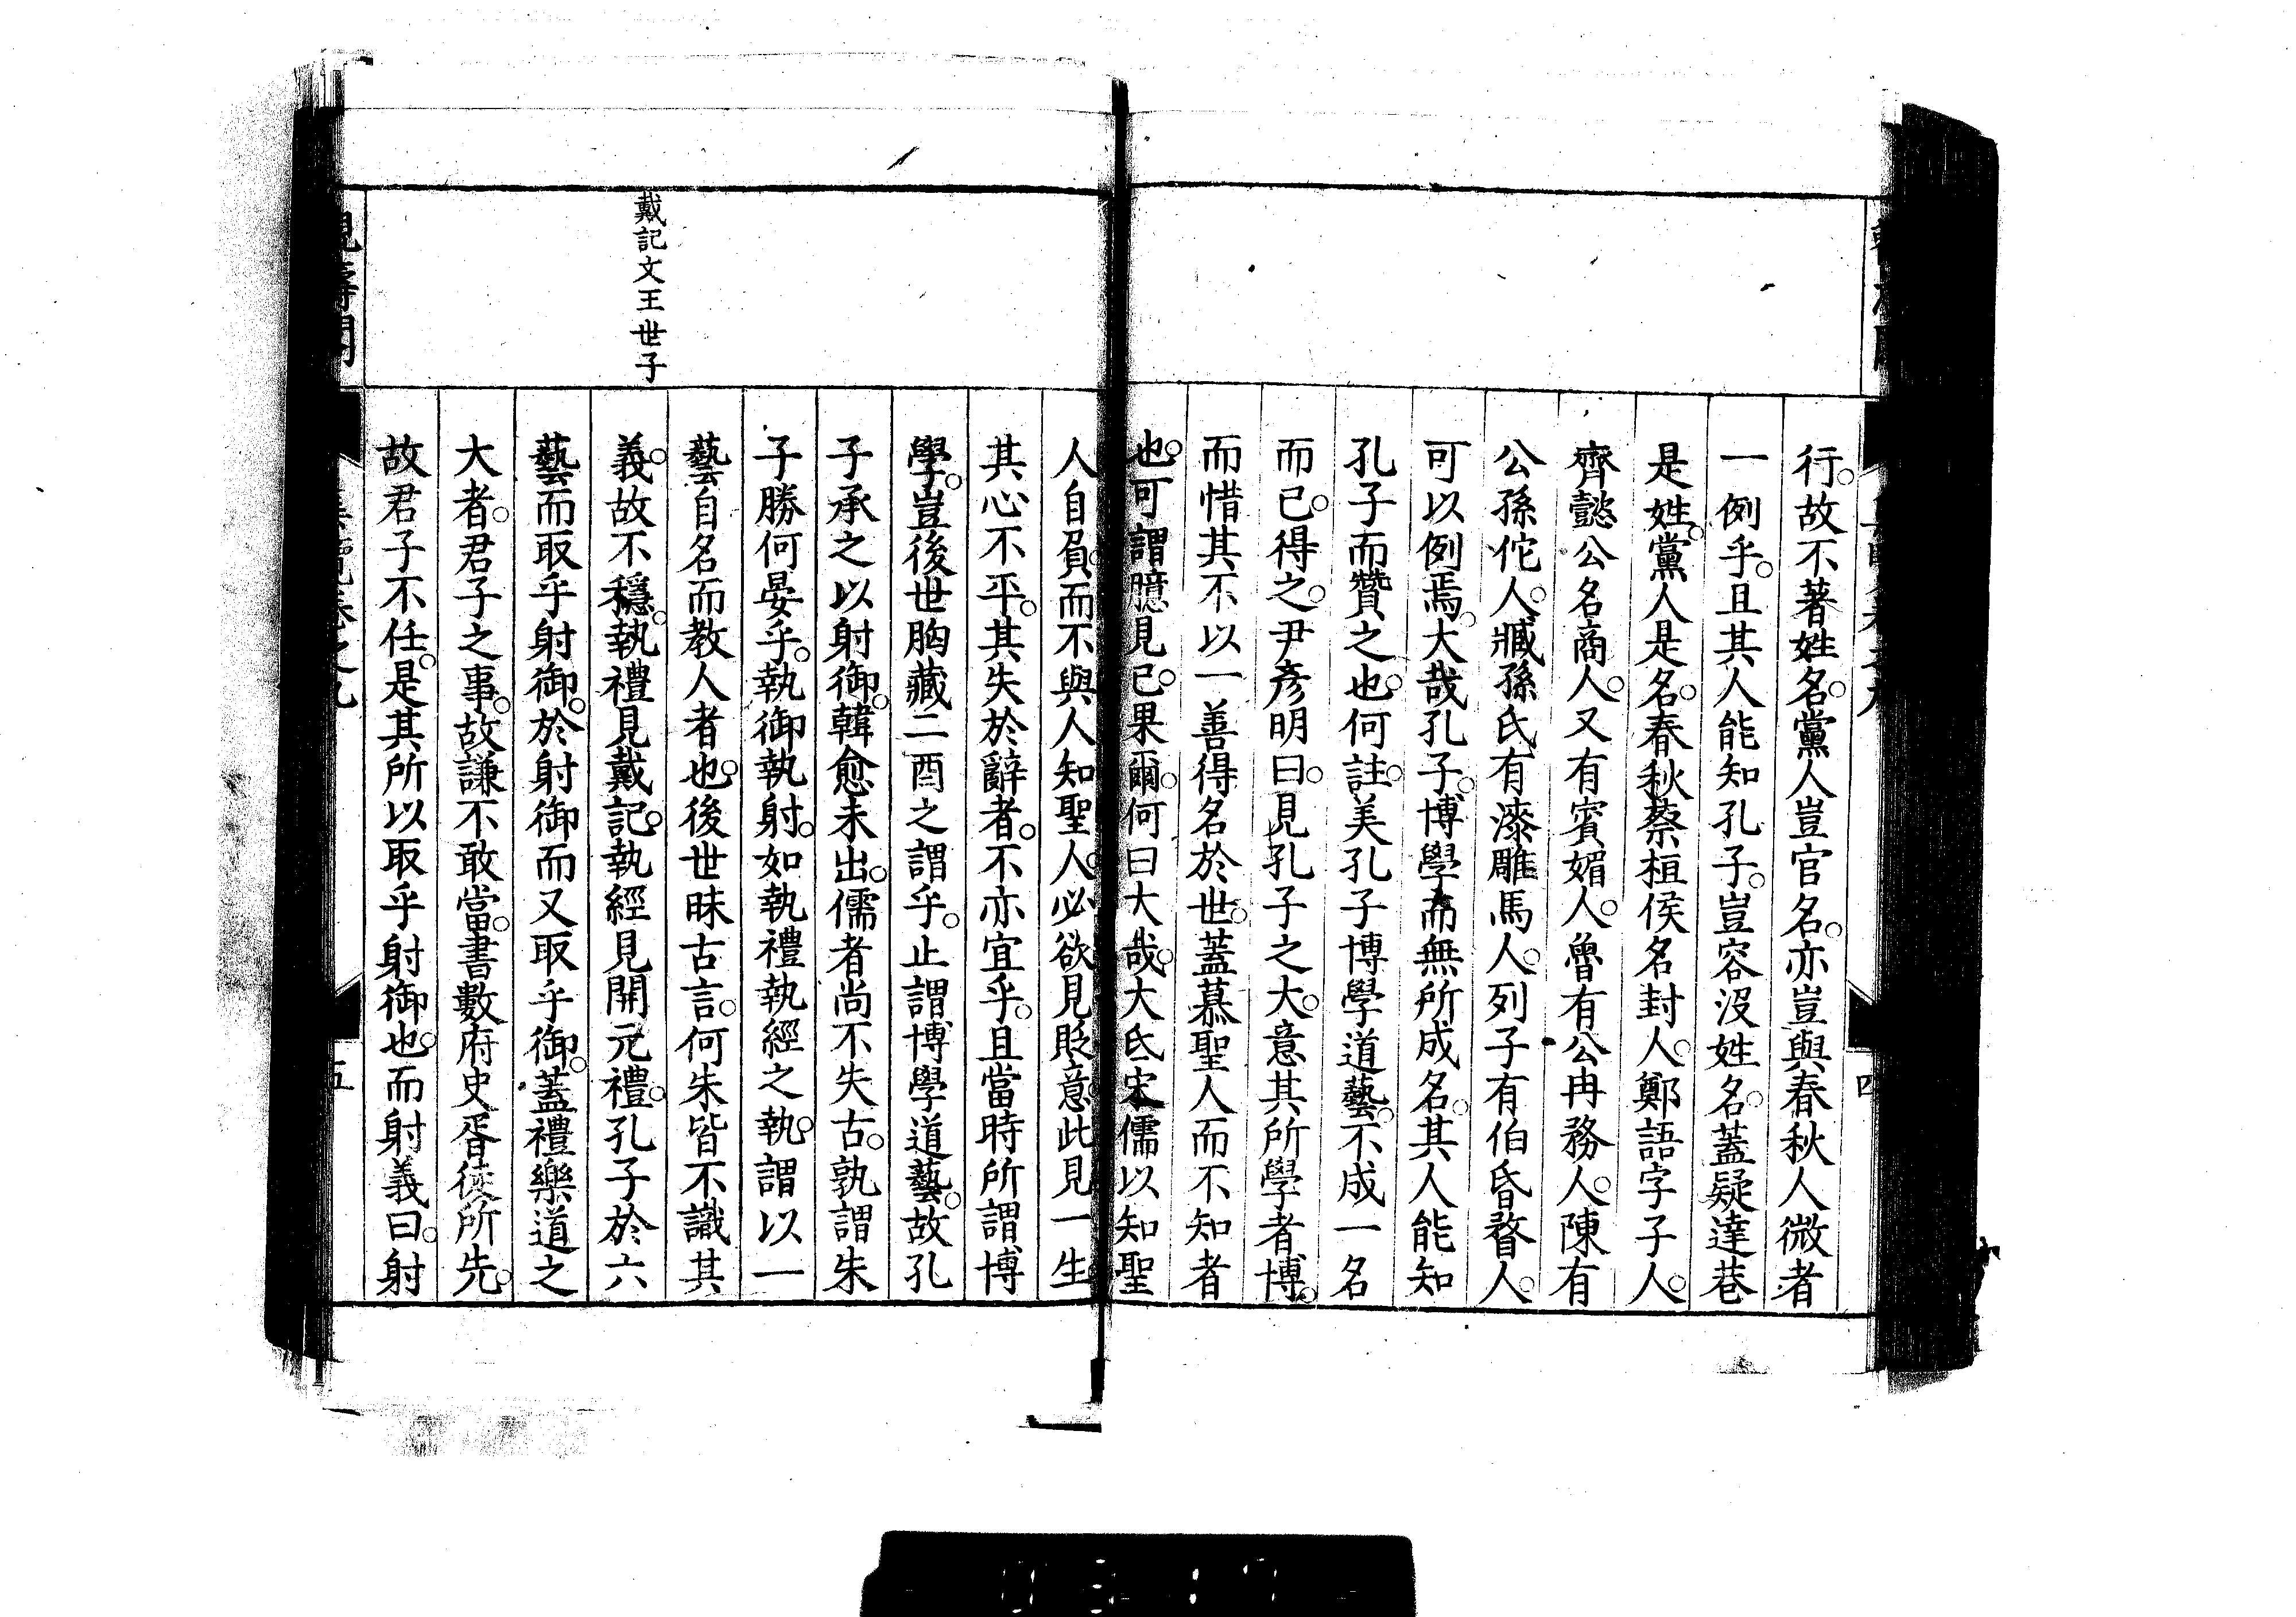 行。故不著姓名。黨人豈官名。亦豈與春秋人微者
一例乎。且其人能知孔子。豈容沒姓名。蓋疑達巷
是姓。黨人是名。春秋蔡桓侯名封人。鄭語字子人。
齊懿公名商人。又有賓媚人。魯有公冉務人。陳有
公孫佗人。臧孫氏有漆雕馬人。列子有伯昏瞀人。
可以例焉。大哉孔子。博學而無所成名。其人能知
孔子而贊之也。何註。美孔子博學道藝。不成一名
而已。得之。尹彥明曰。見孔子之大。意其所學者博。
而惜其不以一善得名於世。蓋慕聖人而不知者
也。可謂臆見已。果爾。何曰大哉。大氐宋儒以知聖
人自負。而不與人知聖人。必欲見貶意。此見一生。
其心不平。其失於辭者。不亦宜乎。且當時所謂博
學。豈後世胸藏二酉之謂乎。止謂博學道藝。故孔
子承之以射御。韓愈未出。儒者尚不失古。孰謂朱
子勝何晏乎。執御執射。如執禮執經之執。謂以一
藝自名而教人者也。後世昧古言。何朱皆不識其
義。故不穩。執禮見戴記。執經見開元禮。孔子於六
藝而取乎射御。於射御而又取乎御。蓋禮樂道之
大者。君子之事。故謙不敢當。書數府史胥徒所先。
故君子不任。是其所以取乎射御也。而射義曰。射
戴記文王世子
五